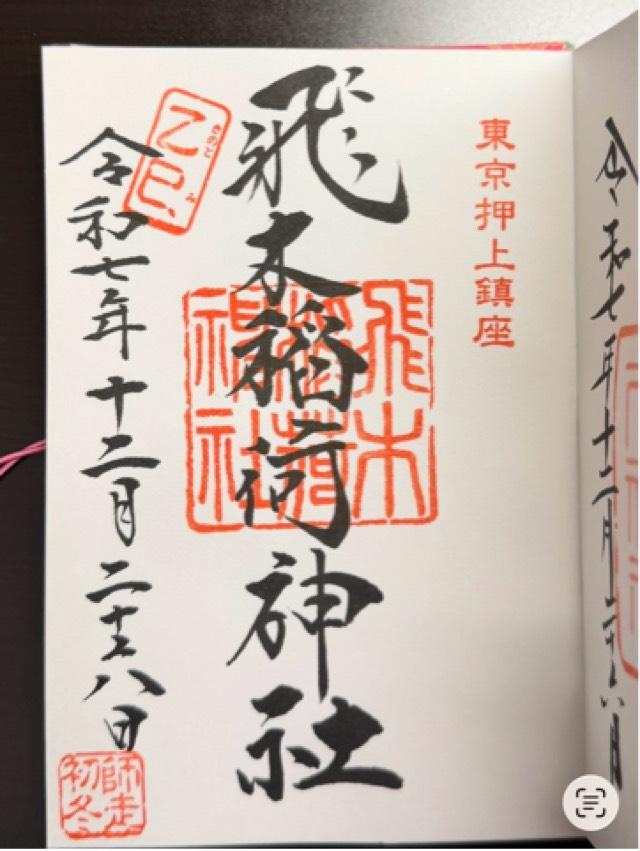 東京押上鎮座
飛木稲荷神社
飛木
稲荷
神社
乙巳
きのとみ
令和七年十二月二十八日
師走
初冬
令和七年十二月二十八日